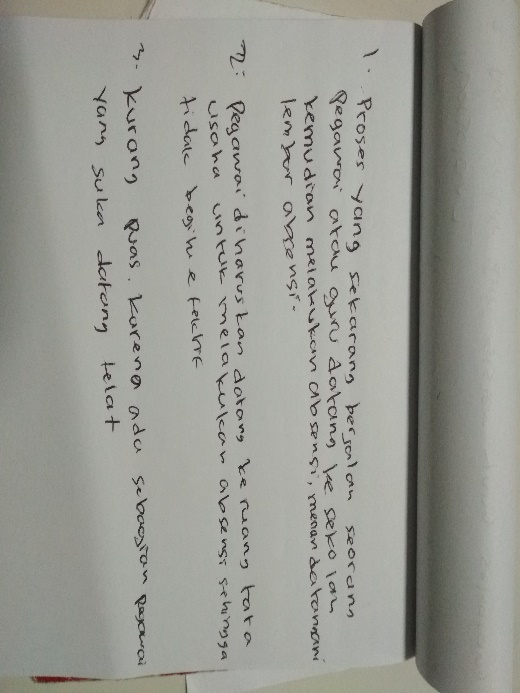 1. Proses yang sekarang berjalan seorang
Pegawai atau guru datang ke sekolah
kemudian melakukan absensi, menandatangani
lembar absensi.
2. Pegawai diharuskan datang ke ruang tata
usaha untuk melakukan absensi sehingga
tidak begitu efektif
3. kurang puas. karena ada sebagian pegawai
yang suka datang telat